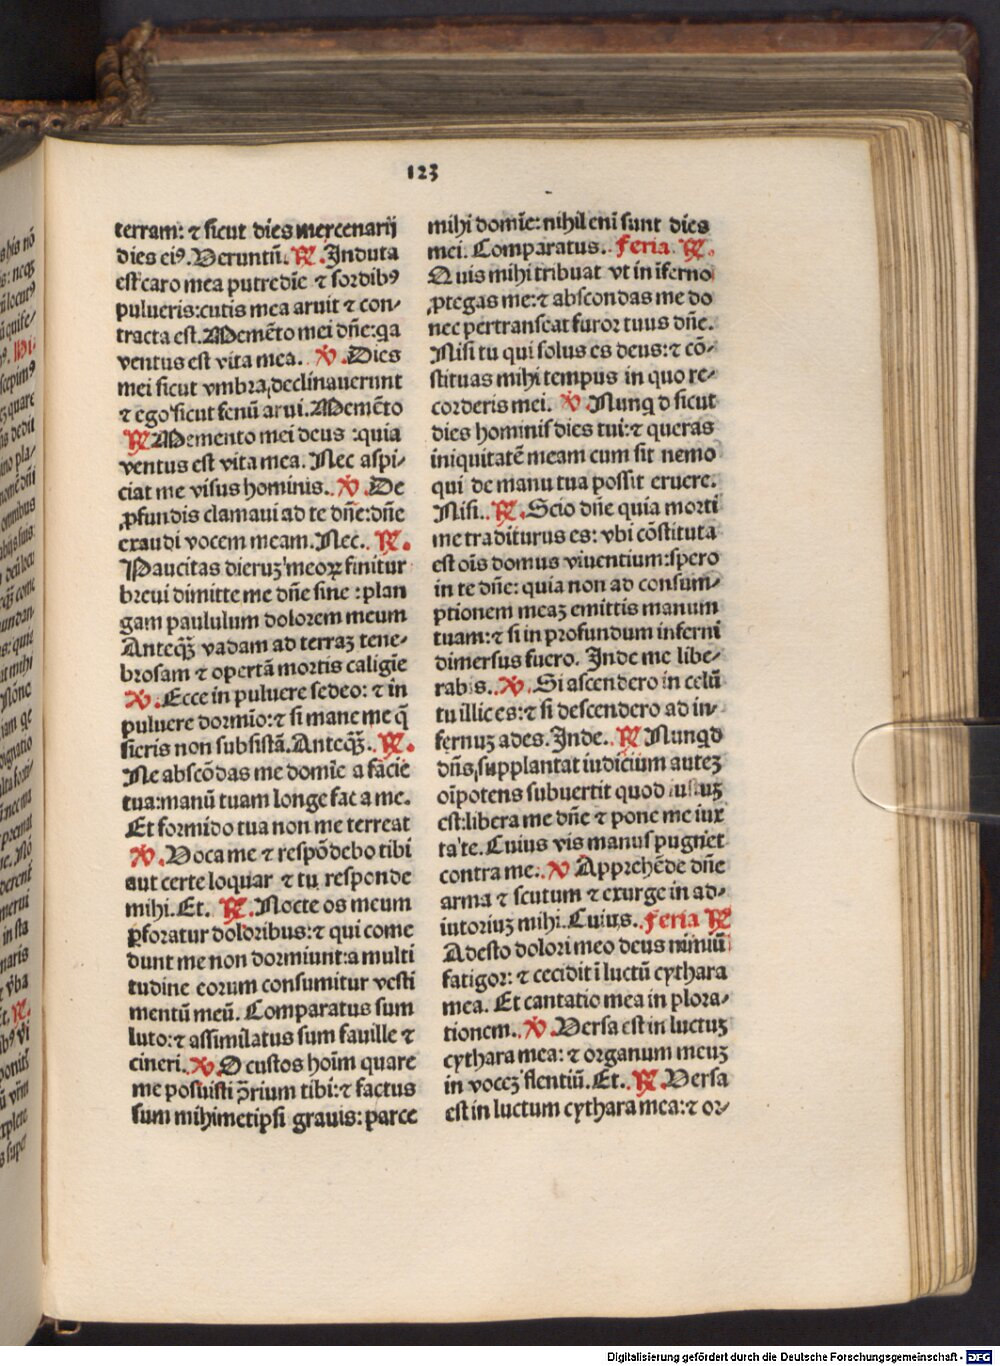 123
terram: ⁊ sicut dies mercenarij
dies eiꝰ. Veruntñ. ℟. Induta
est caro mea putredīe ⁊ sordibꝰ
pulueris: cutis mea aruit ⁊ con-
tracta est. Memēto mei dñe: qa
ventus est vita mea. ℣. Dies
mei sicut vmbra declinauerunt
⁊ ego sicut fenū arui. Memēto
℟ Memento mei deus :quia
ventus est vita mea. Nec aspi-
ciat me visus hominis. ℣. De
ꝓfundis clamaui ad te dñe: dñe
exaudi vocem meam. Nec. ℟.
Paucitas dieruꝫ meoꝝ finitur
breui dimitte me dñe sine : plan
gam paululum dolorem meum
Anteqꝫ̃ vadam ad terraꝫ tene-
brosam ⁊ opertā mortis caligīe
℣. Ecce in puluere sedeo: ⁊ in
puluere dormio: ⁊ si mane me q̄
sieris non subsistā. Anteqꝫ̃. ℟.
Ne abscōdas me domīe a facie
tua: manū tuam longe fac a me.
Et formido tua non me terreat
℣. Voca me ⁊ respōdebo tibi
aut certe loquar ⁊ tu responde
mihi. Et. ℟. Nocte os meum
ꝑforatur doloribus: ⁊ qui come
dunt me non dormiunt: a multi
tudine eorum consumitur vesti
mentū meū. Comparatus sum
luto: ⁊ assimilatus sum fauille ⁊
cineri. ℣. O custos hoīm quare
me posuisti ꝯ̄rium tibi: ⁊ factus
sum mihimetipsi grauis: parce
mihi domīe: nihil enī sunt dies
mei. Comparatus. Feria ℟.
Quis mihi tribuat vt in īferno
ꝓtegas me: ⁊ abscondas me do
nec pertranseat furor tuus dñe.
Nisi tu qui solus es deus: ⁊ cō-
stituas mihi tempus in quo re-
corderis mei. ℣. Nunqd sicut
dies hominis dies tui: ⁊ queras
iniquitatē meam cum sit nemo
qui de manu tua possit eruere.
Nisi. ℟. Scio dñe quia morti
me traditurus es: vbi cōstituta
est oīs domus viuentium: spero
in te dñe: quia non ad consum-
ptionem meaꝫ emittis manum
tuam: ⁊ si in profundum inferni
dimersus fuero. Inde me libe-
rabis. ℣. Si ascendero in celū
tu illic es: ⁊ si descendero ad in-
fernuꝫ ades. Inde. ℟ Nunqd
dñs supplantat iudicium auteꝫ
oīpotens subuertit quod iustuꝫ
est: libera me dñe ⁊ pone me iux
ta te. Cuius vis manus pugnet
contra me. ℣ Apprehēde dñe
arma ⁊ scutum ⁊ exurge in ad-
iutoriuꝫ mihi. Cuius. Feria ℟
Adesto dolori meo deus nimiū
fatigor: ⁊ cecidit ī luctū cythara
mea. Et cantatio mea in plora-
tionem. ℣. Versa est in luctuꝫ
cythara mea: ⁊ organum meuꝫ
in voceꝫ flentiū. Et. ℟. Versa
est in luctum cythara mea: ⁊ or-
Digitalisierung gefördert durch die Deutsche Forschungsgemeinschaft - DFG